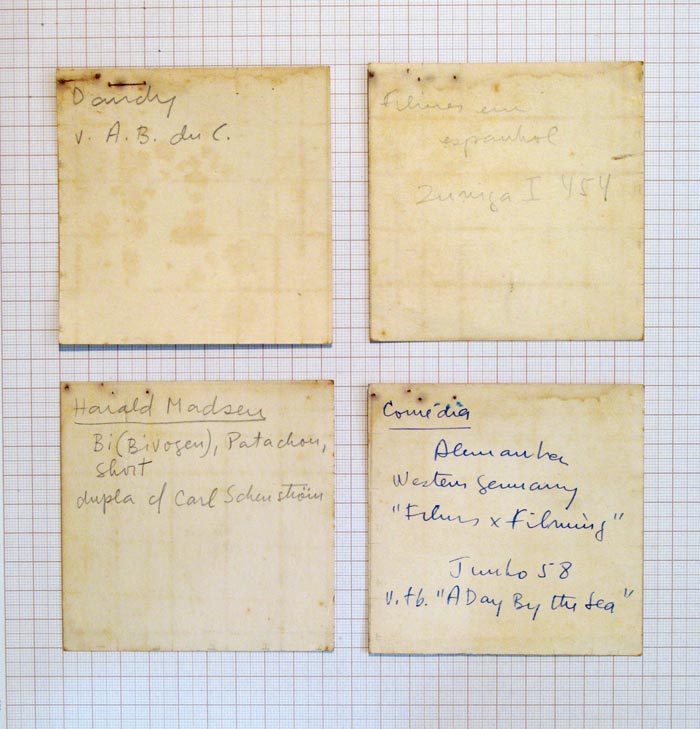 Dandy
v. A. B. du C.
Filmes em
espanhol
Zuniga I 454
Harald Madsen
Bi (Bivogen), Patachon,
short
dupla c/ Carl Schenström
Comédia
Alemanha
Western Germany
"Films x Filming"
Junho 58
v. tb. "A Day By the Sea"